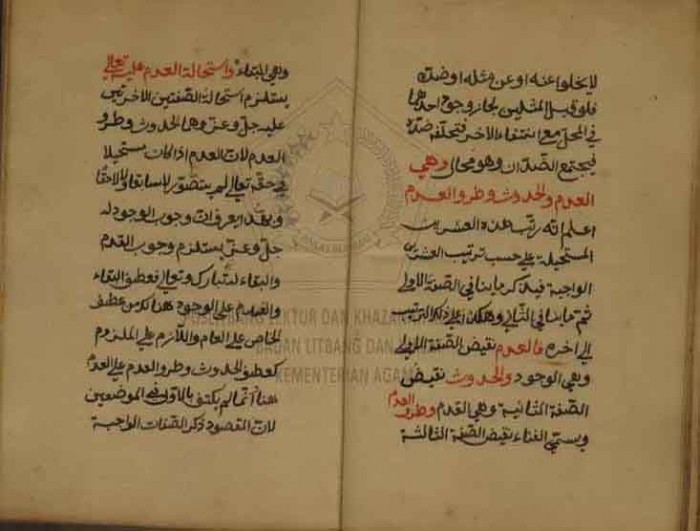 لا يخلوا عنه او عن مثله او ضده
فلو قبل المثلين لجاز وجود احدهما
في المحل مع انتفاء الاخر فيخلفه ضده
فيجتمع الضدان وهو محال وهي
العدم والحدوث وطرو العدم
اعلم انه رتب هذه العشرين
المستحيلة على حسب ترتيب العشرين
الواجبة فيذكر ما ينافي الصفة الاولى
ثم ما ينافي الثاني وهكذا على ذلك الترتيب
الي اخره فالعدم نقيض الصفة الاولى
وهي الوجود والحدوث نقيض
الصفة الثانية وهي القدم وطرو العدم
ويسمى الفناء نقيض الصفة الثالثة
وهي البقاء واستحالة العدم عليه تعالى
يستلزم استحالة الصفتين الاخرتين
عليه جل وعز وهما الحدوث وطرو
العدم لان العدم اذا كان مستحيلا
في حقه تعالى لم يتصور لا سابقا ولا لاحقا
وبهذا يعرف ان وجوب الوجود له
جل وعز يستلزم وجوب القدم
والبقاء له تبارك وتعالى فعطف البقاء
والقدم على الوجود هناك من عطف
الخاص على العام واللازم على الملزوم
كعطف الحدوث وطرو العدم على العدم
هنا وانما لم يكتف بالاول في الموضعين
لان المقصود ذكر الصفات الواجبة
PUSLITBANG LEKTUR DAN KHAZANAH
BADAN LITBANG DAN
KEMENTERIAN AGAMA